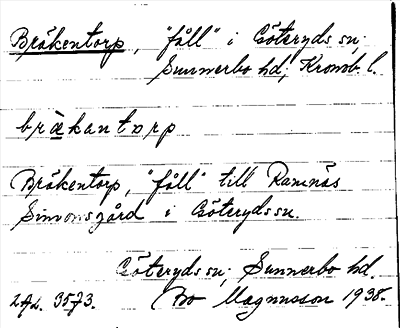 Bräkentorp, "fåll" i Göteryds sn;
Sunnerbo hd; Kronob. l.
bräkantorp
Bräkentorp, "fåll" till Ramnäs
Simonsgård i Göteryds sn.
Göteryds sn; Sunnerbo hd.
3573. Bo Magnusson 1938.